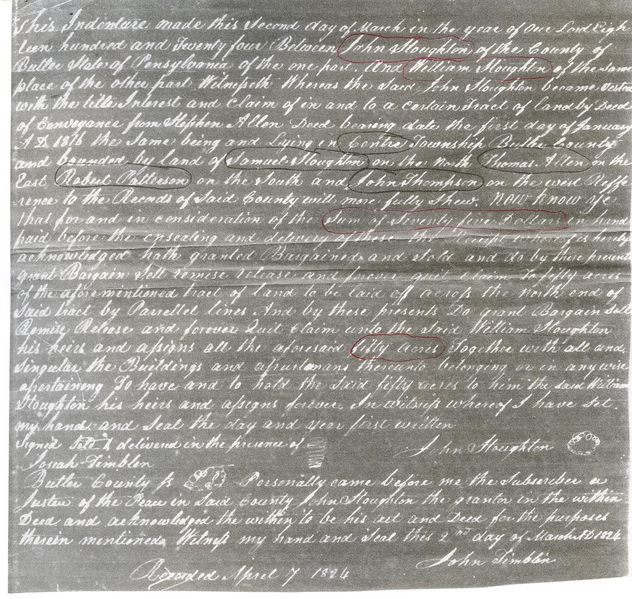 This Indenture made this Second day of March in the year of Our Lord Eigh
teen hundred and Twenty four Between John Stoughton of the County of
Butler State of Pensylvania of the one part. And William Stoughton of the same
place of the other part Witnesseth Whereas the Said John Stoughton became
with the title Interest and Claim of in and to a Certain Tract of land by Deed
of Conveyance from Stephen Allen Deed bearing date the first day of January
AD the Same being and Lying in Centre Township Butler County
and bounded by land of Samuel Stoughton on the North Thomas Allen on the
East Robert Patterson on the South and John Thompson on the west Reffe
rence to the Records of Said County will more fully Shew. Now know ye
that for and in consideration of the Sum of Seventy five Dollars in hand
paid before the ensealing and delivery of these the receipt whereof is hereby
acknowledged hath granted Bargained and Sold and do by these presents
grant Bargain Sell remise release and forever quit claim to fifty acres
of the aforementioned tract of land to be laid off across the north end of
Said tract by Parrellel lines. And by these presents Do grant Bargain Sell
Remise Release and forever Quit Claim unto the Said William Stoughton
his heirs and assigns all the aforesaid fifty acres Together with all and
Singular the Buildings and thereunto belonging or in any wise
To have and to hold the Said fifty acres to him the Said William
Stoughton his heirs and assigns forever. In witness whereof I have Set
my hand and Seal the day and year first written
Signed & delivered in the presence of
John Stoughton
Josiah Timblen
Butler County Ss Personally came before me the Subscriber a
Justice of the Peace in Said County John Stoughton the grantor in the within
Deed and acknowledged the within to be his act and Deed for the purposes
therein mentioned. Witness my hand and Seal this 2nd day of March AD 1824
John Timblin
Recorded April 7 1824